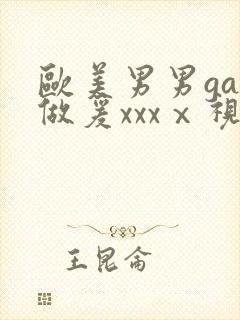 歐美男男ga
做爰xxxⅹ視
王昆侖